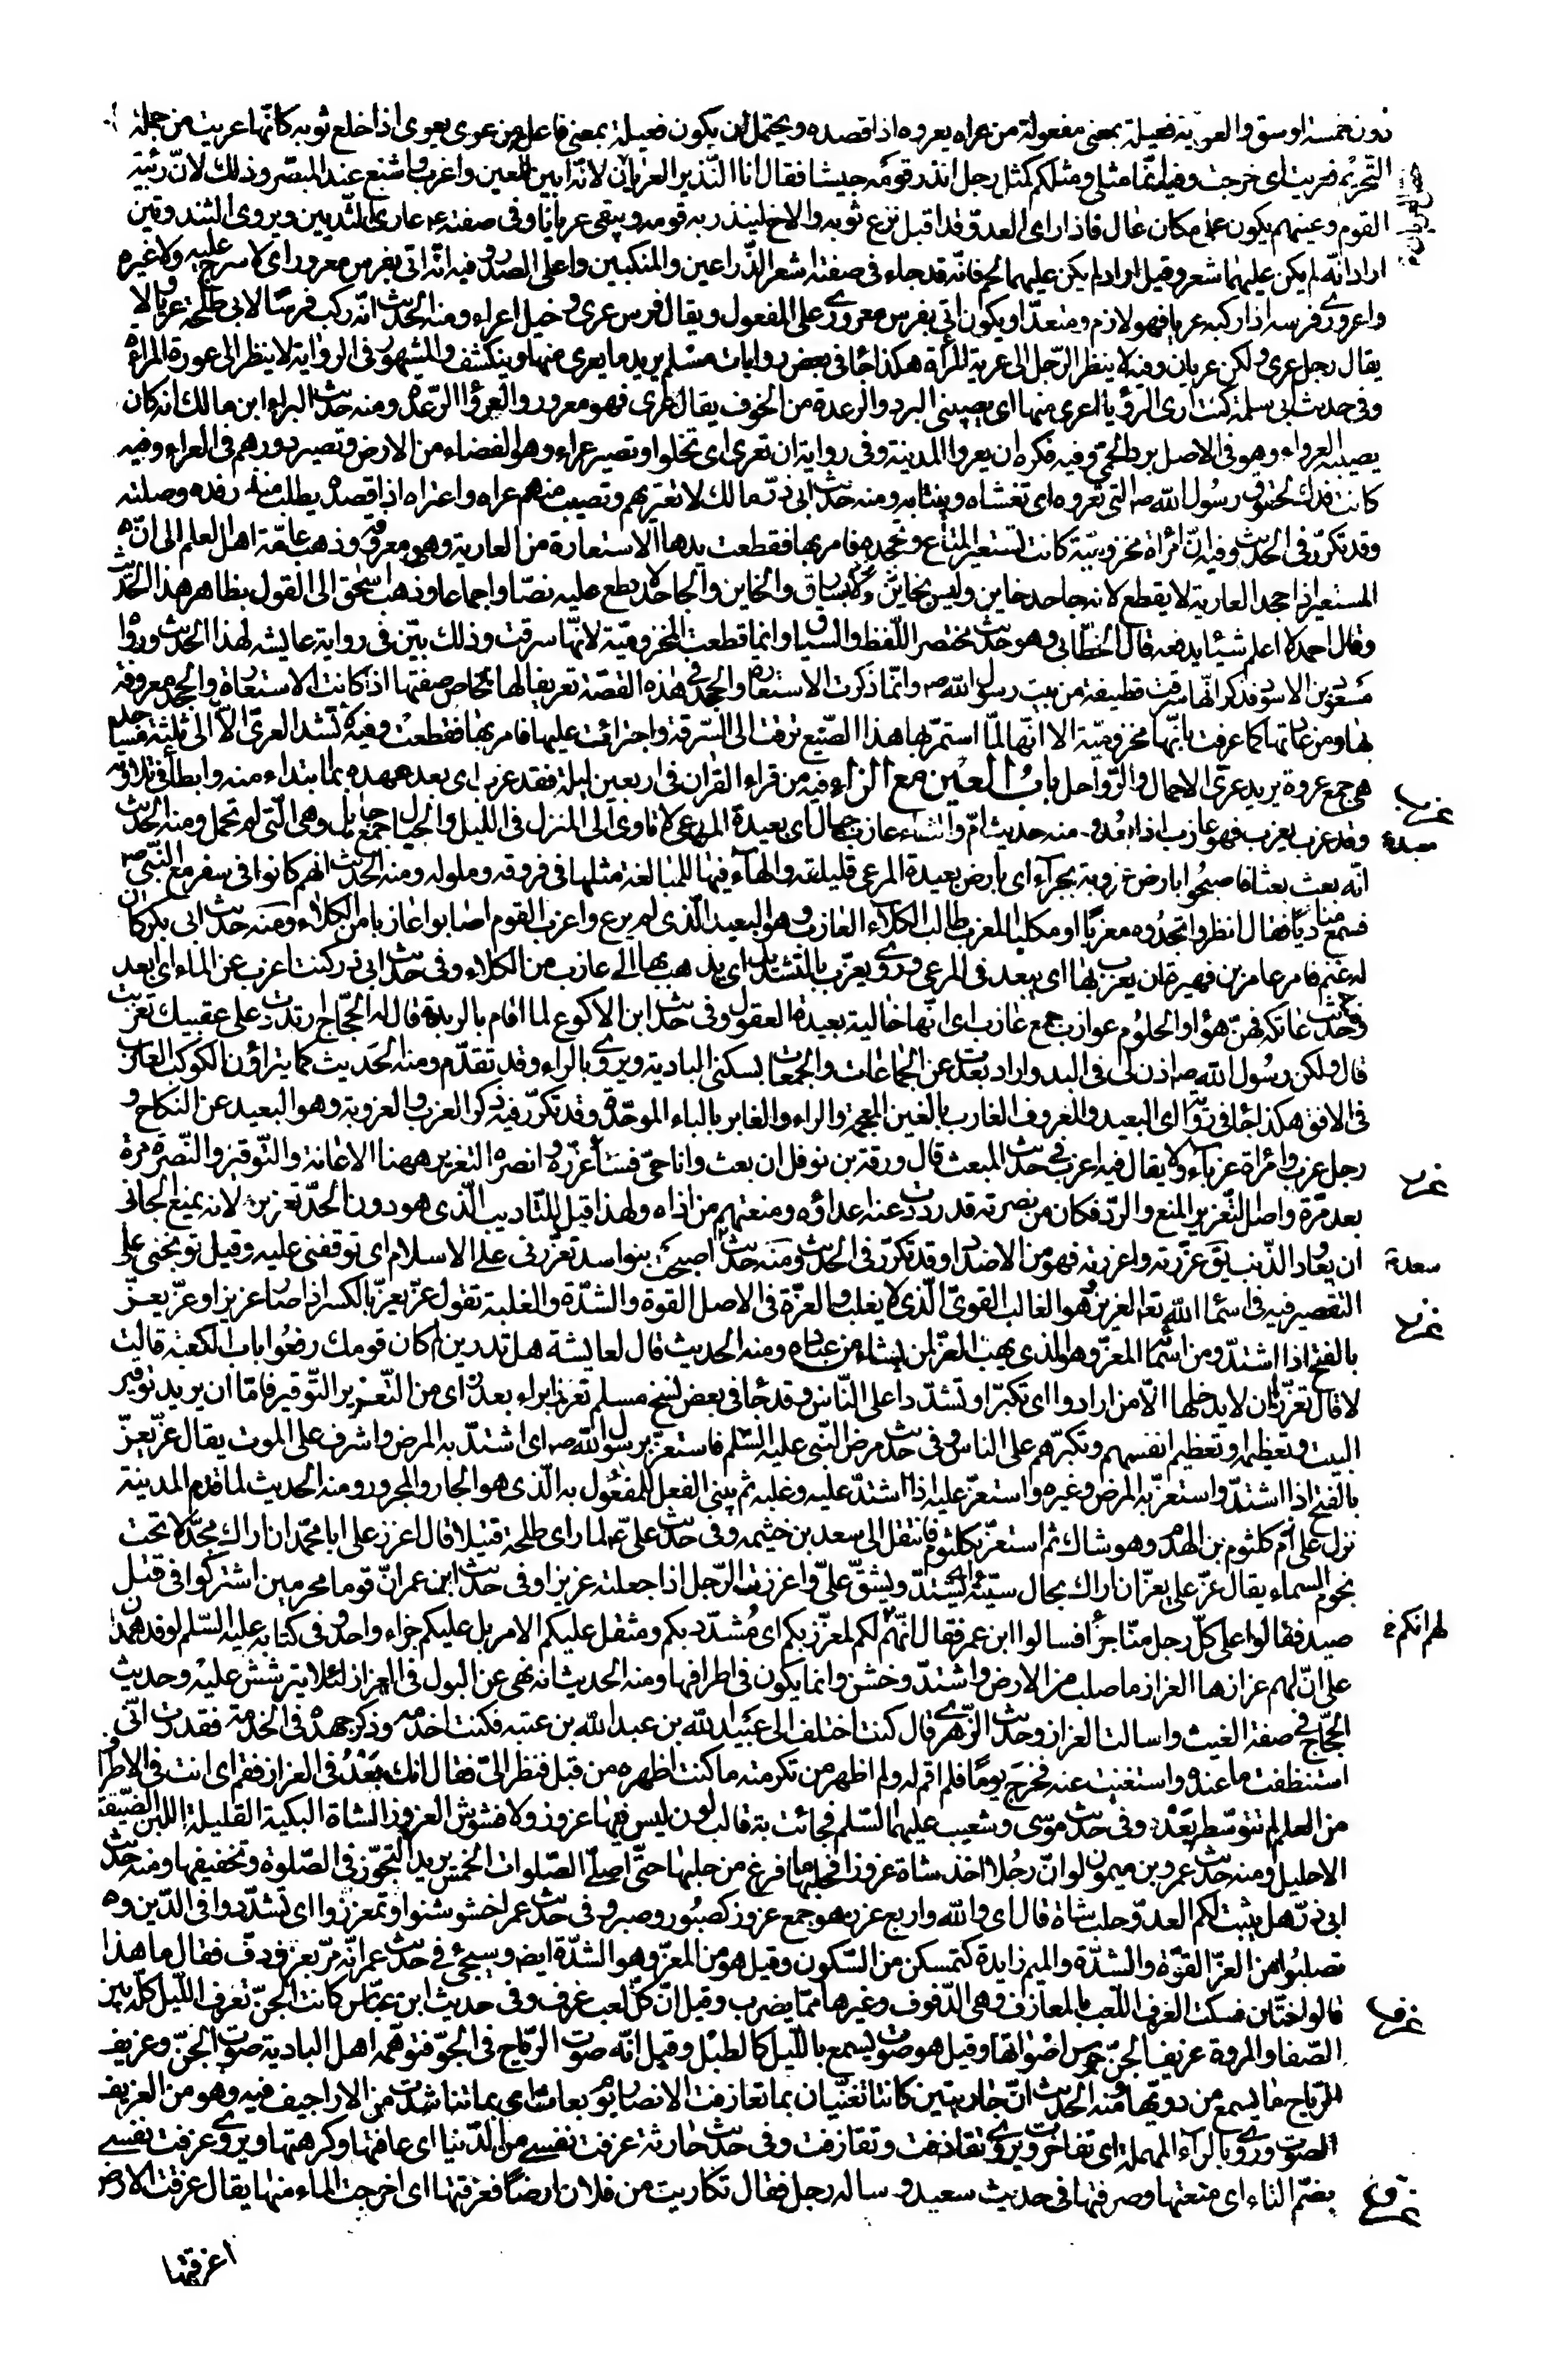 دون خمسة اوسق والعرية فعيلة بمعنى مفعولة من عراه يعروه اذا قصده ويحتمل ان يكون فعيلة بمعنى فاعل من عرى يعرى اذا خلع ثوبه كانّها عريت من جملة
التحريم فعريت اى خرجت وفيه انّما مثلى ومثلكم كمثل رجل انذر قومه جيشا فقال انا النّذير العريان لانّه ابين للعين واغرب واشنع عند المبصّر وذلك لانّ ربيّة
القوم وعينهم يكون على مكان عال فاذا راى العدوّ قد اقبل نزع ثوبه والاح لينذر به قومه ويبقى عريانا وفى صفته ع عارى الثّديين ويروى الثندوتين
اراد انّه لم يكن عليهما شعر وقيل اراد لم يكن عليهما لحم فانّه قد جاء فى صفته اشعر الذّراعين والمنكبين واعلى الصدر وفيه انّه اتى بفرس معرور اى لا سرج عليه ولا غيره
واعرورى فرسه اذا ركبه عريا فهو لازم ومتعدّ او يكون اتى بفرس معرورى على المفعول ويقال فرس عرى وخيل اعراء ومنه الحديث انّه ركب فرسا لابى طلحة عريا ولا
يقال رجل عرى ولكن عريان وفيه لا ينظر الرّجل الى عرية المرأة هكذا جا فى بعض روايات مسلم يريد ما يعرى منها وينكشف والمشهور فى الرواية لا ينظر الى عورة المراة
وفى حديث ابى سلمة كنت ارى الرؤيا اعرى منها اى يصيبنى البرد والرعدة من الخوف يقال عرى فهو معرور والعرواء الرّعدة ومنه حديث البراء ابن مالك انه كان
يصيبه العرواء وهو فى الاصل برد الحمّى وفيه فكره ان يعروا المدينة وفى رواية ان تعرى اى تخلو او تصير عراء وهو الفضاء من الارض وتصير دورهم فى العراء وفيه
كانت فدك لحقوق رسول الله ص التى تعروه اى تغشاه وينتابه ومنه حديث ابى ذرّ مالك لا تعتريهم وتصيب منهم عراه واعتراه اذا قصده يطلب منه رفده وصلته
وقد تكرّر فى الحديث وفيه انّ امراة مخزوميّة كانت تستعير المتاع وتجحده فامر بها فقطعت يدها الاستعارة من العارية وهى معروفة وذهب عامّة اهل العلم الى انّ
المستعير اذا جحد العارية لا يقطع لانه جاحد خاين وليس بخاين وسارق والخاين والجاحد لا قطع عليه نصّا واجماعا وذهب اسحق الى القول بظاهر هذا الحديث
وقال احمد لا اعلم شيئا يدفعه قال الخطّابى وهو حديث مختصر اللّفظ والسياق وانما قطعت المخزوميّة لانّها سرقت وذلك بيّن فى رواية عايشه لهذا الحديث ورواه
مسعود بن الاسود فذكر انّها سرقت قطيفة من بيت رسول الله ص وانّما ذكرت الاستعارة والجحد فى هذه القصّة تعريفا لها بخاصّ صفتها اذ كانت الاستعارة والجحد معروفة
بها ومن عادتها كما عرفت بانّها مخزوميّة الا انّها لمّا استمرّ بها هذا الصّنيع ترقت الى السّرقة واجترأت عليها فامر بها فقطعت وفيه لا تشد العرى الّا الى ثلثة مساجد
هى جمع عروة يريد عرى الاحمال والرّواحل باب العين مع الزاء فيه من قراء القران فى اربعين ليلة فقد عزب اى بعد عهده بما ابتداء منه وابطأ فى تلاوته
وقد عزب يعزب فهو عازب اذا بعد ومنه حديث امّ معبد والشاء عازب حيال اى بعيدة المرعى لا تاوى الى المنزل فى الليل والحيال جمع حايل وهى الّتى لم تحمل ومنه الحديث
انّه بعث بعثا فاصبحوا بارض عزوبة بجراء اى بارض بعيدة المرعى قليلته والهاء فيها للمبالغة مثلها فى فروقه وملوله ومنه الحديث انهم كانوا فى سفر مع النّبى ص
فسمع مناديا فقال انظروا تجدوه معزبا او مكلئا المعزب طالب الكلاء العازب وهو البعيد الّذى لم يرع واعزب القوم اصابوا عازبا من الكلاء ومنه حديث ابى بكر كان
له غنم فامر عامر بن فهيرة ان يعزب بها اى يبعد فى المرعى ويروى يعزّب بالتشديد اى يذهب بها الى عازب من الكلاء وفى حديث ابى ذر كنت اعزب عن الماء اى ابعد
وحديث عاتكه فهنّ هواء والحلوم عوازب جمع عازب اى انّها خالية بعيدة العقول وفى حديث ابن الاكوع لما اقام بالربذة قال له الحجّاج ارتددت على عقبيك تعزّبت
قال ولكن رسول الله ص اذن لى فى البدو اراد بعدت عن الجماعات والجمعات بسكنى البادية ويروى بالراء وقد تقدّم ومنه الحديث كما يتراؤن الكوكب العازب
فى الافق هكذا جا فى رواية اى البعيد والمعروف الغارب بالغين المعجمة والراء والغابر بالباء الموحّدة وقد تكرّر فيه ذكر العزب والعزوبة وهو البعيد عن النكاح و
رجل عزب وامراة عزباء ولا يقال فيه اعزب فى حديث المبعث قال ورقة بن نوفل ان بعث وانا حىّ فساعزّره وانصره التعزير ههنا الاعانة والتّوقير والنّصرة مرّة
بعد مرّة واصل التّعزير المنع والردّ فكان من نصرته قد رددت عنه اعداؤه ومنعتهم من اذاه ولهذا قيل للتّاديب الّذى هو دون الحدّ تعزير لانه يمنع الجانى
ان يعاود الذّنب يق عزّرته واعزرته فهو من الاضداد وقد تكرّر فى الحديث ومنه حديث سعد اصبحت بنو اسد تعزّرنى على الاسلام اى توقفنى عليه وقيل توبخنى على
التقصير فيه فى اسما الله تعالى العزيز هو الغالب القوىّ الّذى لا يغلب والعزّة فى الاصل القوة والشدّة والغلبة تقول عزّ يعزّ بالكسر اذا صار عزيزا وعزّ يعزّ
بالفتح اذا اشتدّ ومن اسما المعزّ وهو الذى يهب العزّ لمن يشاء من عباده ومنه الحديث قال لعايشة هل تدرين لم كان قومك رفعوا باب الكعبة قالت
لا قال تعزّزا ان لا يدخلها الّا من ارادوا اى تكبّرا وتشدّدا على النّاس وقد جا فى بعض نسخ مسلم تعزرا براء بعد زاء اى من التّعزير التّوقير فامّا ان يريد توقير
البيت وتعظيمه او تعظيم انفسهم وتكبّرهم على الناس وفى حديث مرض النّبى عليه السّلم فاستعزّ برسول الله ص اى اشتدّ به المرض واشرف على الموت يقال عزّ يعزّ
بالفتح اذا اشتدّ واستعزّ به المرض وغيره واستعزّ عليه اذا اشتدّ عليه وغلبه ثم يبنى الفعل للمفعول به الّذى هو الجار والمجرور ومنه الحديث لما قدم المدينة
نزل على ام كلثوم بن الهدم وهو شاك ثم استعزّ بكلثوم فانتقل الى سعد بن خثيمه وفى حديث علىّ ع لما راى طلحة قتيلا قال اعزز على ابا محمّد ان اراك مجدّلا تحت
نجوم السماء يقال عزّ على يعزّ ان اراك بحال سيّئة اى يشتدّ ويشقّ علىّ واعززت الرّجل اذا جعلته عزيزا وفى حديث ابن عمر انّ قوما محرمين اشتركوا فى قتل
صيد فقالوا على كلّ رجل منّا جزأ فسالوا ابن عمر فقال لهم انّكم لمعزّز بكم اى مشدّد بكم ومثقل عليكم الامر بل عليكم جزاء واحد وفى كتابه عليه السّلم لوفد همدان
على انّ لهم عزازها العزاز ما صلب من الارض واشتدّ وخشن وانما يكون فى اطرافها ومنه الحديث انه نهى عن البول فى العزاز لئلا يترشش عليه وحديث
الحجّاج فى صفة الغيث واسالت العزاز وحديث الزّهرى قال كنت اختلف الى عبيد الله بن عبد الله بن عتبه فكنت اخدمه وذكر جهده فى الخدمة فقدرت انّى
استنطفت ما عنده واستغنيت عنه فخرج يوما فلم اقم له ولم اظهر من تكرمته ما كنت اظهره من قبل فنظر الىّ فقال انك بعد فى العزاز فقم اى انت فى الاطراف
من العلم لم تتوسّط بعد وفى حديث موسى وشعيب عليهما السّلم فجائت به قالب لون ليس فيها عزوز ولا فشوش العزوز الشاة البكية القليلة اللبن الضّيّقة
الاحليل ومنه حديث عمرو بن ميمون لو انّ رجلا اخذ شاة عزوزا فحلبها ما فرغ من حلبها حتّى اصلّى الصّلوات الخمس يريد التّجوّز فى الصّلوة وتخفيفها ومنه حديث
ابى ذرّ هل يثبت لكم العدوّ حلب شاة قال اى والله واربع عزز هو جمع عزوز كصبور وصبر وفى حديث عمر اخشوشنوا وتمعززوا اى تشدّدوا فى الدّين و
تصلبوا من العزّ القوّة والشدّة والميم زايدة كتمسكن من السّكون وقيل هو من المعز وهو الشدّة ايض وسيجئ فى حديث عمر انّه مرّ بعزف دفّ فقال ما هذا
قالوا ختان فسكت العزف اللّعب بالمعازف وهى الدّفوف وغيرها ممّا يضرب وقيل انّ كلّ لعب عزف وفى حديث ابن عبّاس كانت الجنّ تعزف اللّيل كلّه بين
الصّفا والمروة عزيف الجنّ جرس اصواتها وقيل هو صوت يسمع بالليل كالطبل وقيل انّه صوت الرّياح فى الجوّ فتوهّمه اهل البادية صوت الجنّ وعزيف
الرّياح ما يسمع من دويّها ومنه الحديث انّ جاريتين كانتا تغنّيان بما تعازفت الانصار يوم بعاث اى بما تناشدت من الاراجيف فيه وهو من العزيف
الصوت وروى بالراء المهملة اى تفاخرت ويروى تقاذفت وتقارفت وفى حديث حارثة عزفت نفسى من الدّنيا اى عافتها وكرهتها ويروى عزفت نفسى
بضمّ التاء اى منعتها وصرفتها فى حديث سعيد وساله رجل فقال تكاريت من فلان ارضا فعزقتها اى اخرجت الماء منها يقال عزقت الارض
اعزقها
عزب
معبد
عزر
سعد
عزز
لهم انكم
عزف
عزق